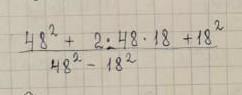 48² + 2·48·18 + 18²
48² - 18²